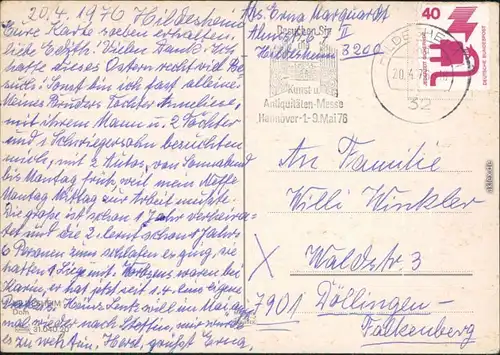 20.4.1976 Hildesheim
Eure Karte soeben erhalten,
liebe Edith. Vielen Dank. Ich
hatte dieses Ostern recht viel Be-
such. Sonst bin ich fast alleine.
Meines Bruders Tochter Anneliese,
mit ihrem Mann u. 2 Töchter
und 1 Schwiegersohn besuchten
mich, mit 2 Autos, von Sonnabend
bis Montag früh, weil mein Neffe
Montag Mittag zur Arbeit mußte.
Die große ist schon 1 Jahr verheira-
tet und die 2. lernt schon 1 Jahr.
6 Personen zum schlafen es ging, sie
hatten 1 Liege mit. Voriges waren bei
Karin, er hat jetzt seit 1.4. eine eigene
Heinz will im Mai
mal wieder nach Stettin, mir wird
es zu weit sein. Herzl. grüßt Erna.
Abs. Erna Marquardt
II
Hildesheim 3200
Besuchen Sie
die
Kunst u.
Antiquitäten-Messe
Hannover 1.-9. Mai 76
HILDESHEIM
20.4.76
32
40
JEDERZEIT SICHERHEIT
DEUTSCHE BUNDESPOST
An Familie
Willi Winkler
Waldstr. 3
X
7901 Döllingen-
Falkenberg
HILDESHEIM
Dom
31 040 20